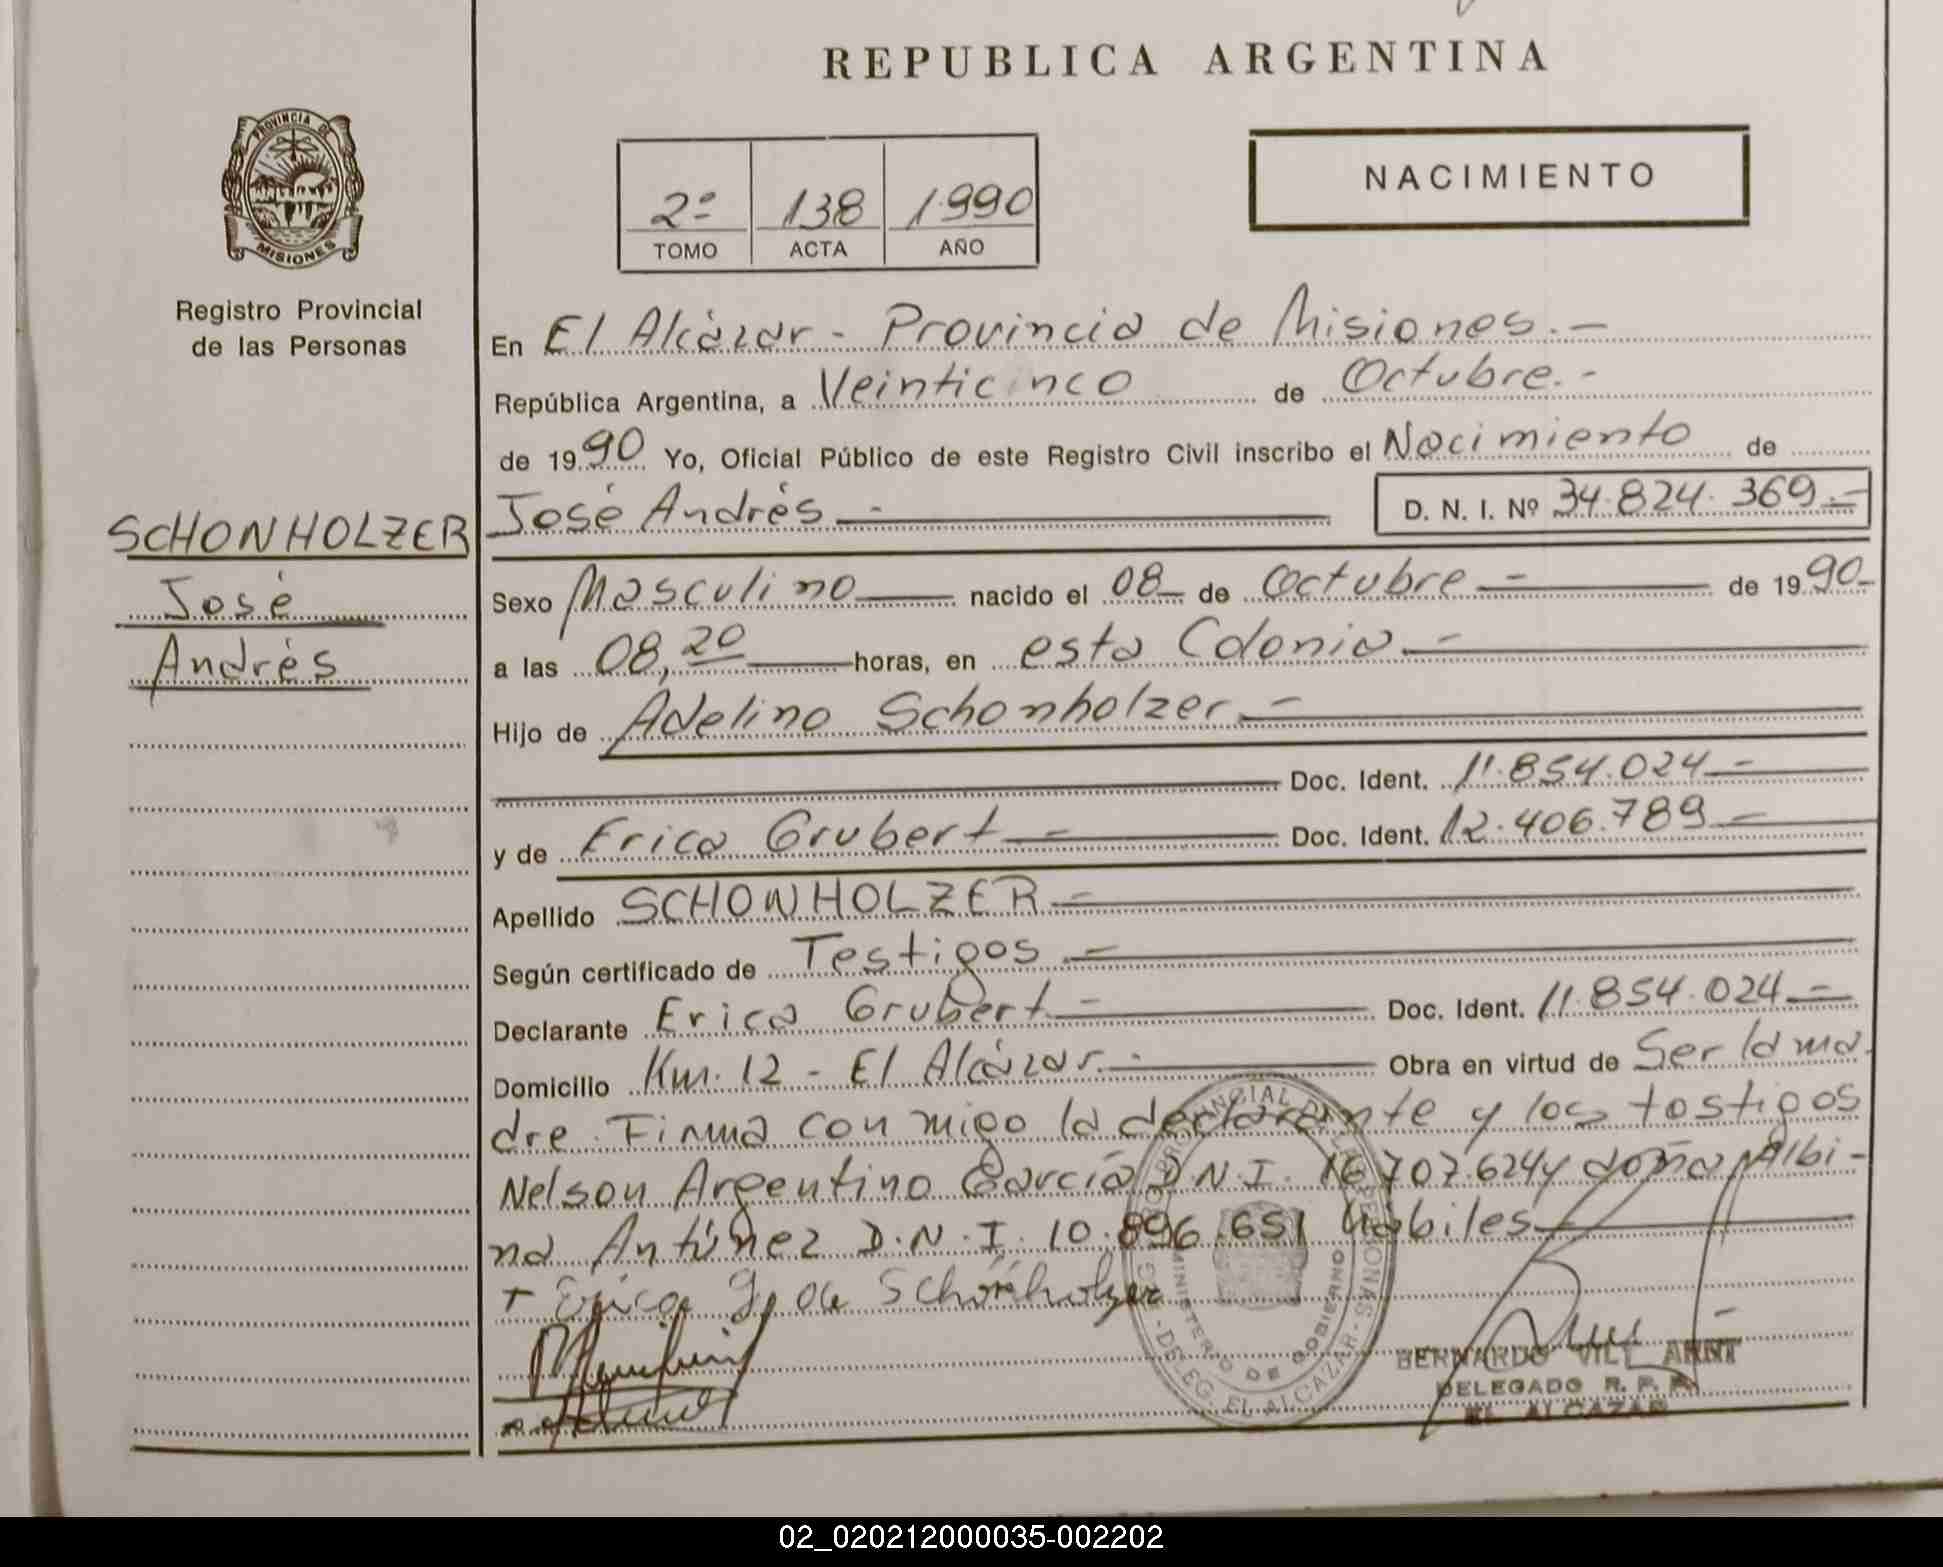 REPUBLICA ARGENTINA
PROVINCIA DE
MISIONES
Registro Provincial
de las Personas
2º 138 1990
TOMO ACTA AÑO
NACIMIENTO
En El Alcázar - Provincia de Misiones.-
República Argentina, a Veinticinco de Octubre.-
de 1990 Yo, Oficial Público de este Registro Civil inscribo el Nacimiento de
José Andrés - D. N. I. Nº 34.824.369.-
SCHONHOLZER
José
Andrés
Sexo Masculino nacido el 08 de Octubre - de 1990-
a las 08,20 horas, en esta Colonia -
Hijo de Adelino Schonholzer -
Doc. Ident. 11.854.024-
y de Erica Grubert - Doc. Ident. 12.406.789-
Apellido SCHONHOLZER -
Según certificado de Testigos -
Declarante Erica Grubert - Doc. Ident. 11.854.024-
Domicilio Km. 12 - El Alcázar.- Obra en virtud de Ser la ma
dre. Firma con migo la declarante y los testigos
Nelson Argentino García D.N.I. 16.707.624 y doña Albi-
na Antúnez D.N.I. 10.896.651 hábiles
+ Erica G. de Schönholzer
MINISTERIO DE GOBIERNO
DELEG. EL ALCAZAR
BERNARDO VILL
DELEGADO R. P. P.
EL ALCAZAR
02_020212000035-002202